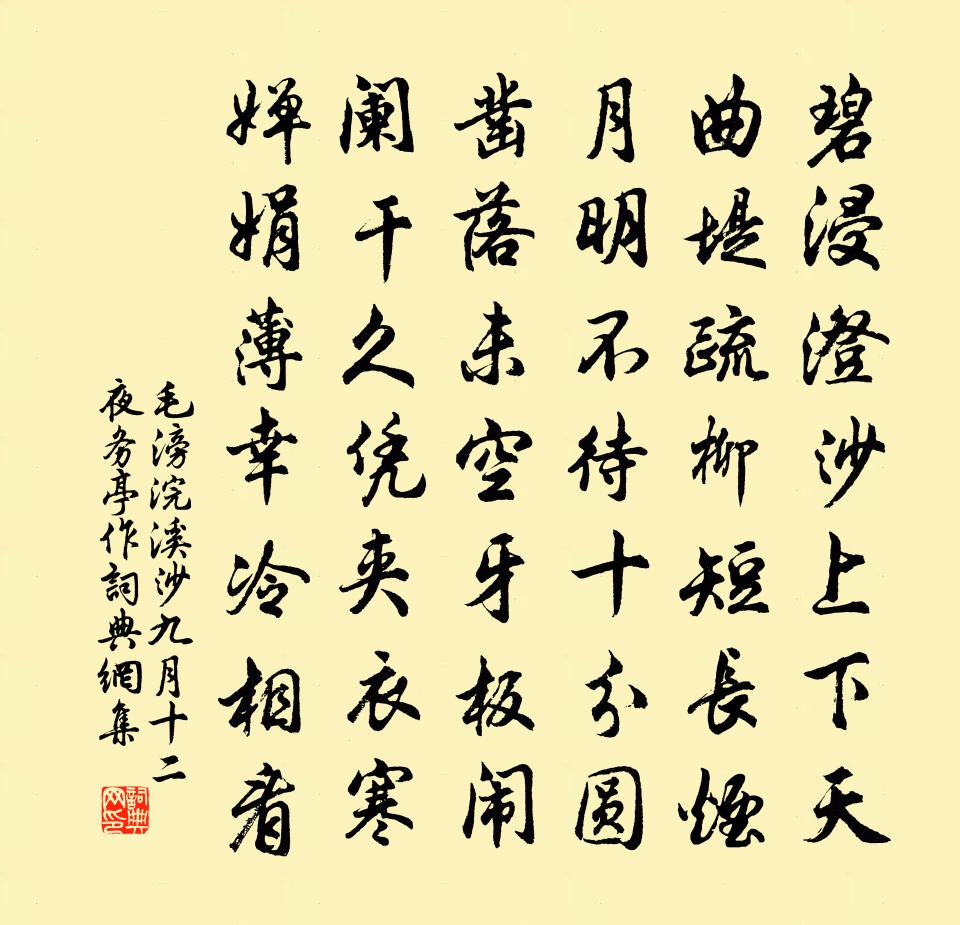 碧浸澄沙上下天
曲堤疏柳短長煙
月明不待十分圓
凿落未空牙板闹
阑干久凭夹衣寒
婵娟薄幸冷相看
毛滂浣溪沙九月十二
夜务亭作詞典網集
詞典
网印